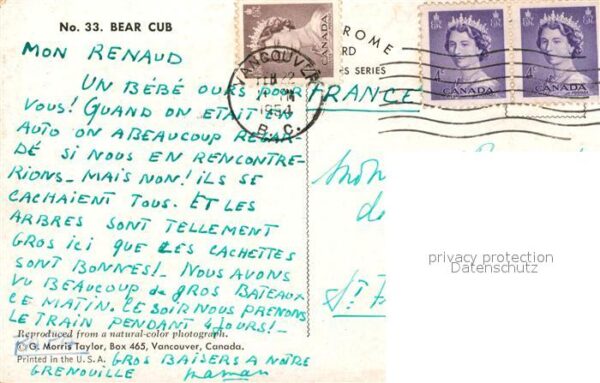 No. 33. BEAR CUB
MON RENAUD
UN BÉBÉ OURS POUR
VOUS! QUAND ON ETAIT EN
AUTO ON A BEAUCOUP REGAR-
DÉ SI NOUS EN RENCONTRE-
RIONS- MAIS NON! ILS SE
CACHAIENT TOUS. ET LES
ARBRES SONT TELLEMENT
GROS ICI QUE LES CACHETTES
SONT BONNES!- NOUS AVONS
VU BEAUCOUP de GROS BATEAUX
CE MATIN. LE SOIR NOUS PRENONS
LE TRAIN PENDANT 4 JOURS!-
Reproduced from a natural-color photograph.
© G. Morris Taylor, Box 465, Vancouver, Canada.
Printed in the U. S. A.
GROS BAISERS A NOTRE
GRENOUILLE maman
CANADA
VANCOUVER
FEB 22
1954
B. C.
ROME
ARD
S SERIES
4¢
CANADA
4¢
CANADA
FRANCE
de
St
privacy protection
Datenschutz